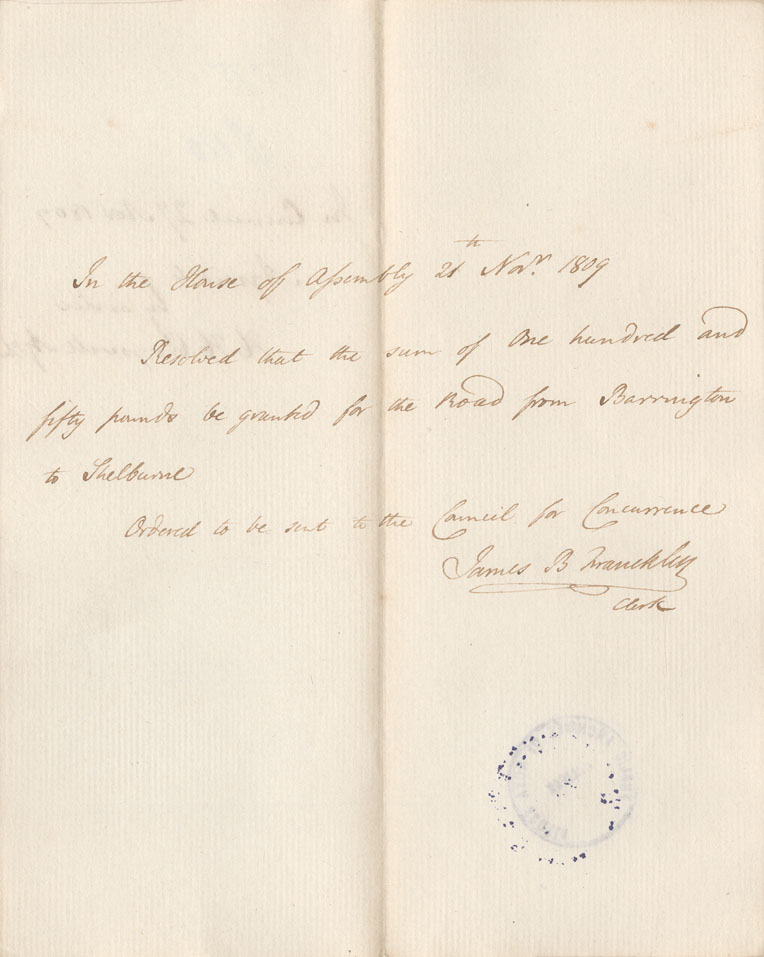 In the House of Assembly 21th Novr. 1809
Resolved that the sum of One hundred and
fifty pounds be granted for the Road from Barrington
to Shelburne
Ordered to be sent to the Council for Concurrence
James B Franckling
Clerk